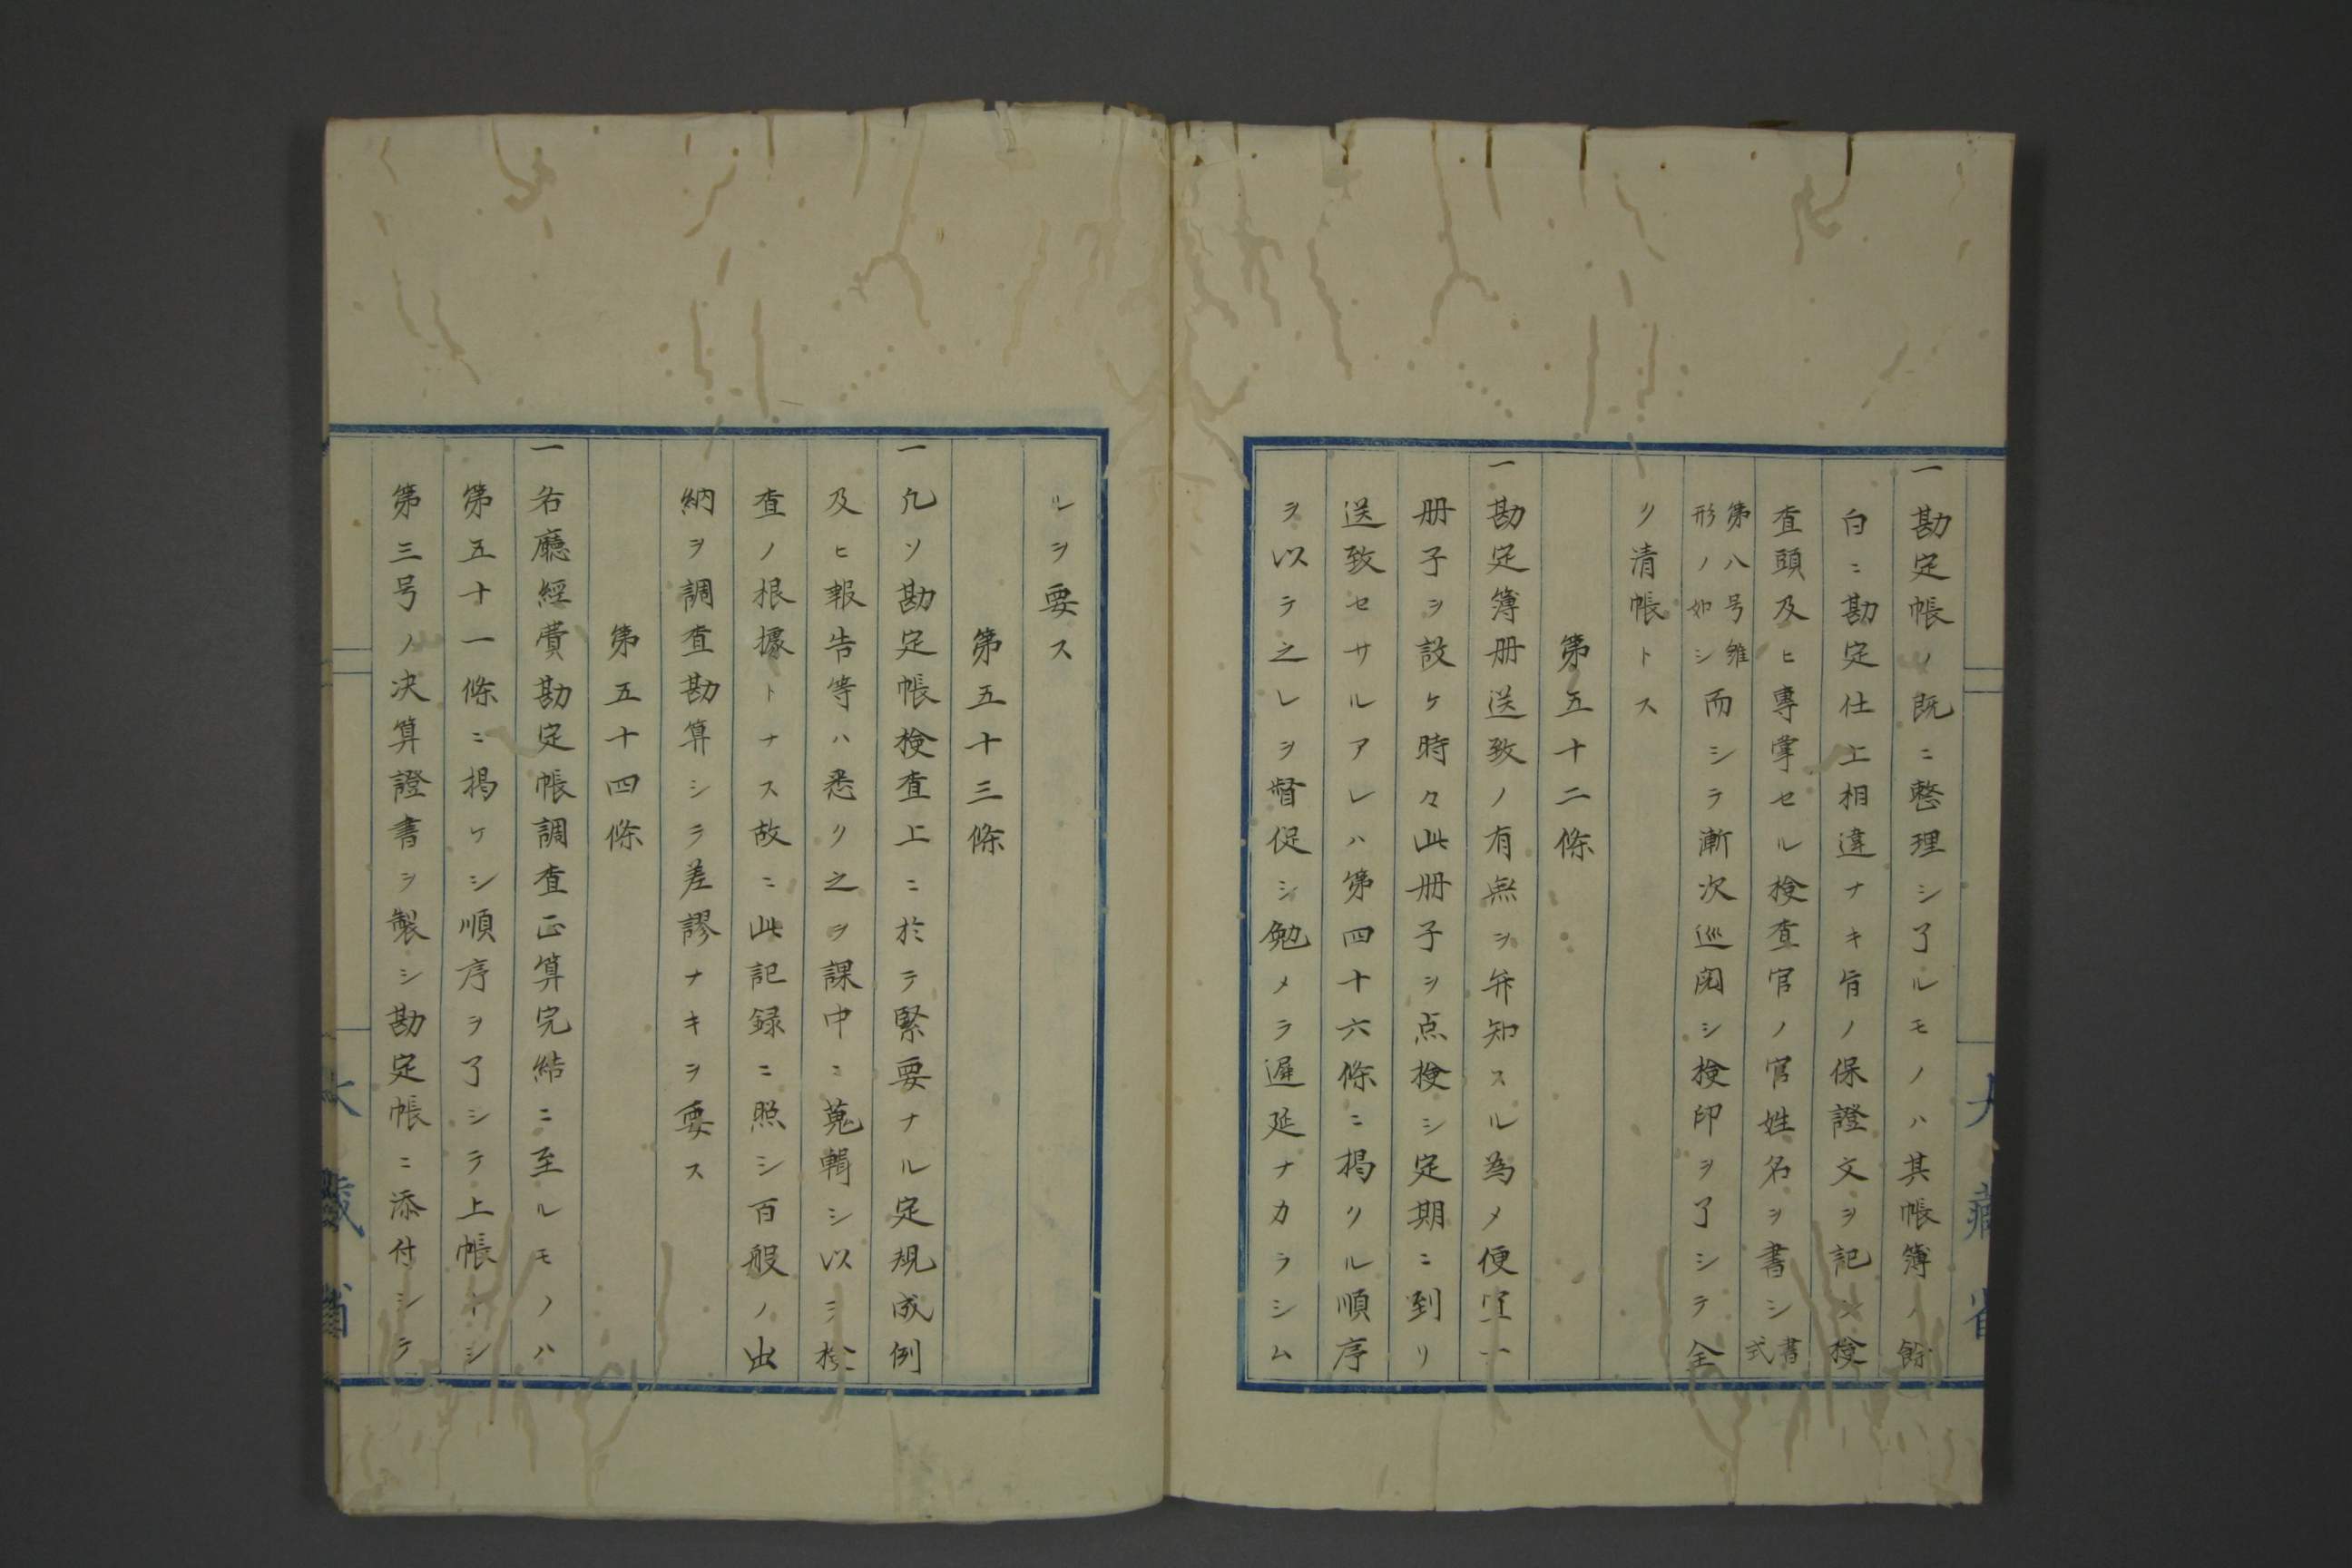 一勘定帳ノ既ニ整理シ了ルモノハ其帳簿ノ餘
白ニ勘定仕上相違ナキ旨ノ保證文ヲ記シ檢
査頭及ヒ專掌セル檢査官ノ官姓名ヲ書シ書式
第八号雛形ノ如シ而シテ漸次巡閲シ檢印ヲ了シテ全
ク清帳トス
第五十二條
一勘定簿册送致ノ有無ヲ弁知スル為メ便宜
册子ヲ設ケ時々此册子ヲ点檢シ定期ニ到リ
送致セサルアレハ第四十六條ニ掲クル順序
ヲ以テ之レヲ督促シ勉メテ遲延ナカラシム
大藏省
ルヲ要ス
第五十三條
一凡ソ勘定帳檢査上ニ於テ緊要ナル定規成例
及ヒ報告等ハ悉ク之ヲ課中ニ蒐輯シ以テ檢
査ノ根據トナス故ニ此記録ニ照シ百般ノ出
納ヲ調査勘算シテ差謬ナキヲ要ス
第五十四條
一各廳經費勘定帳調査正算完結ニ至ルモノハ
第五十一條ニ掲ケシ順序ヲ了シテ上帳トシ
第三号ノ决算證書ヲ製シ勘定帳ニ添付シテ
大藏省